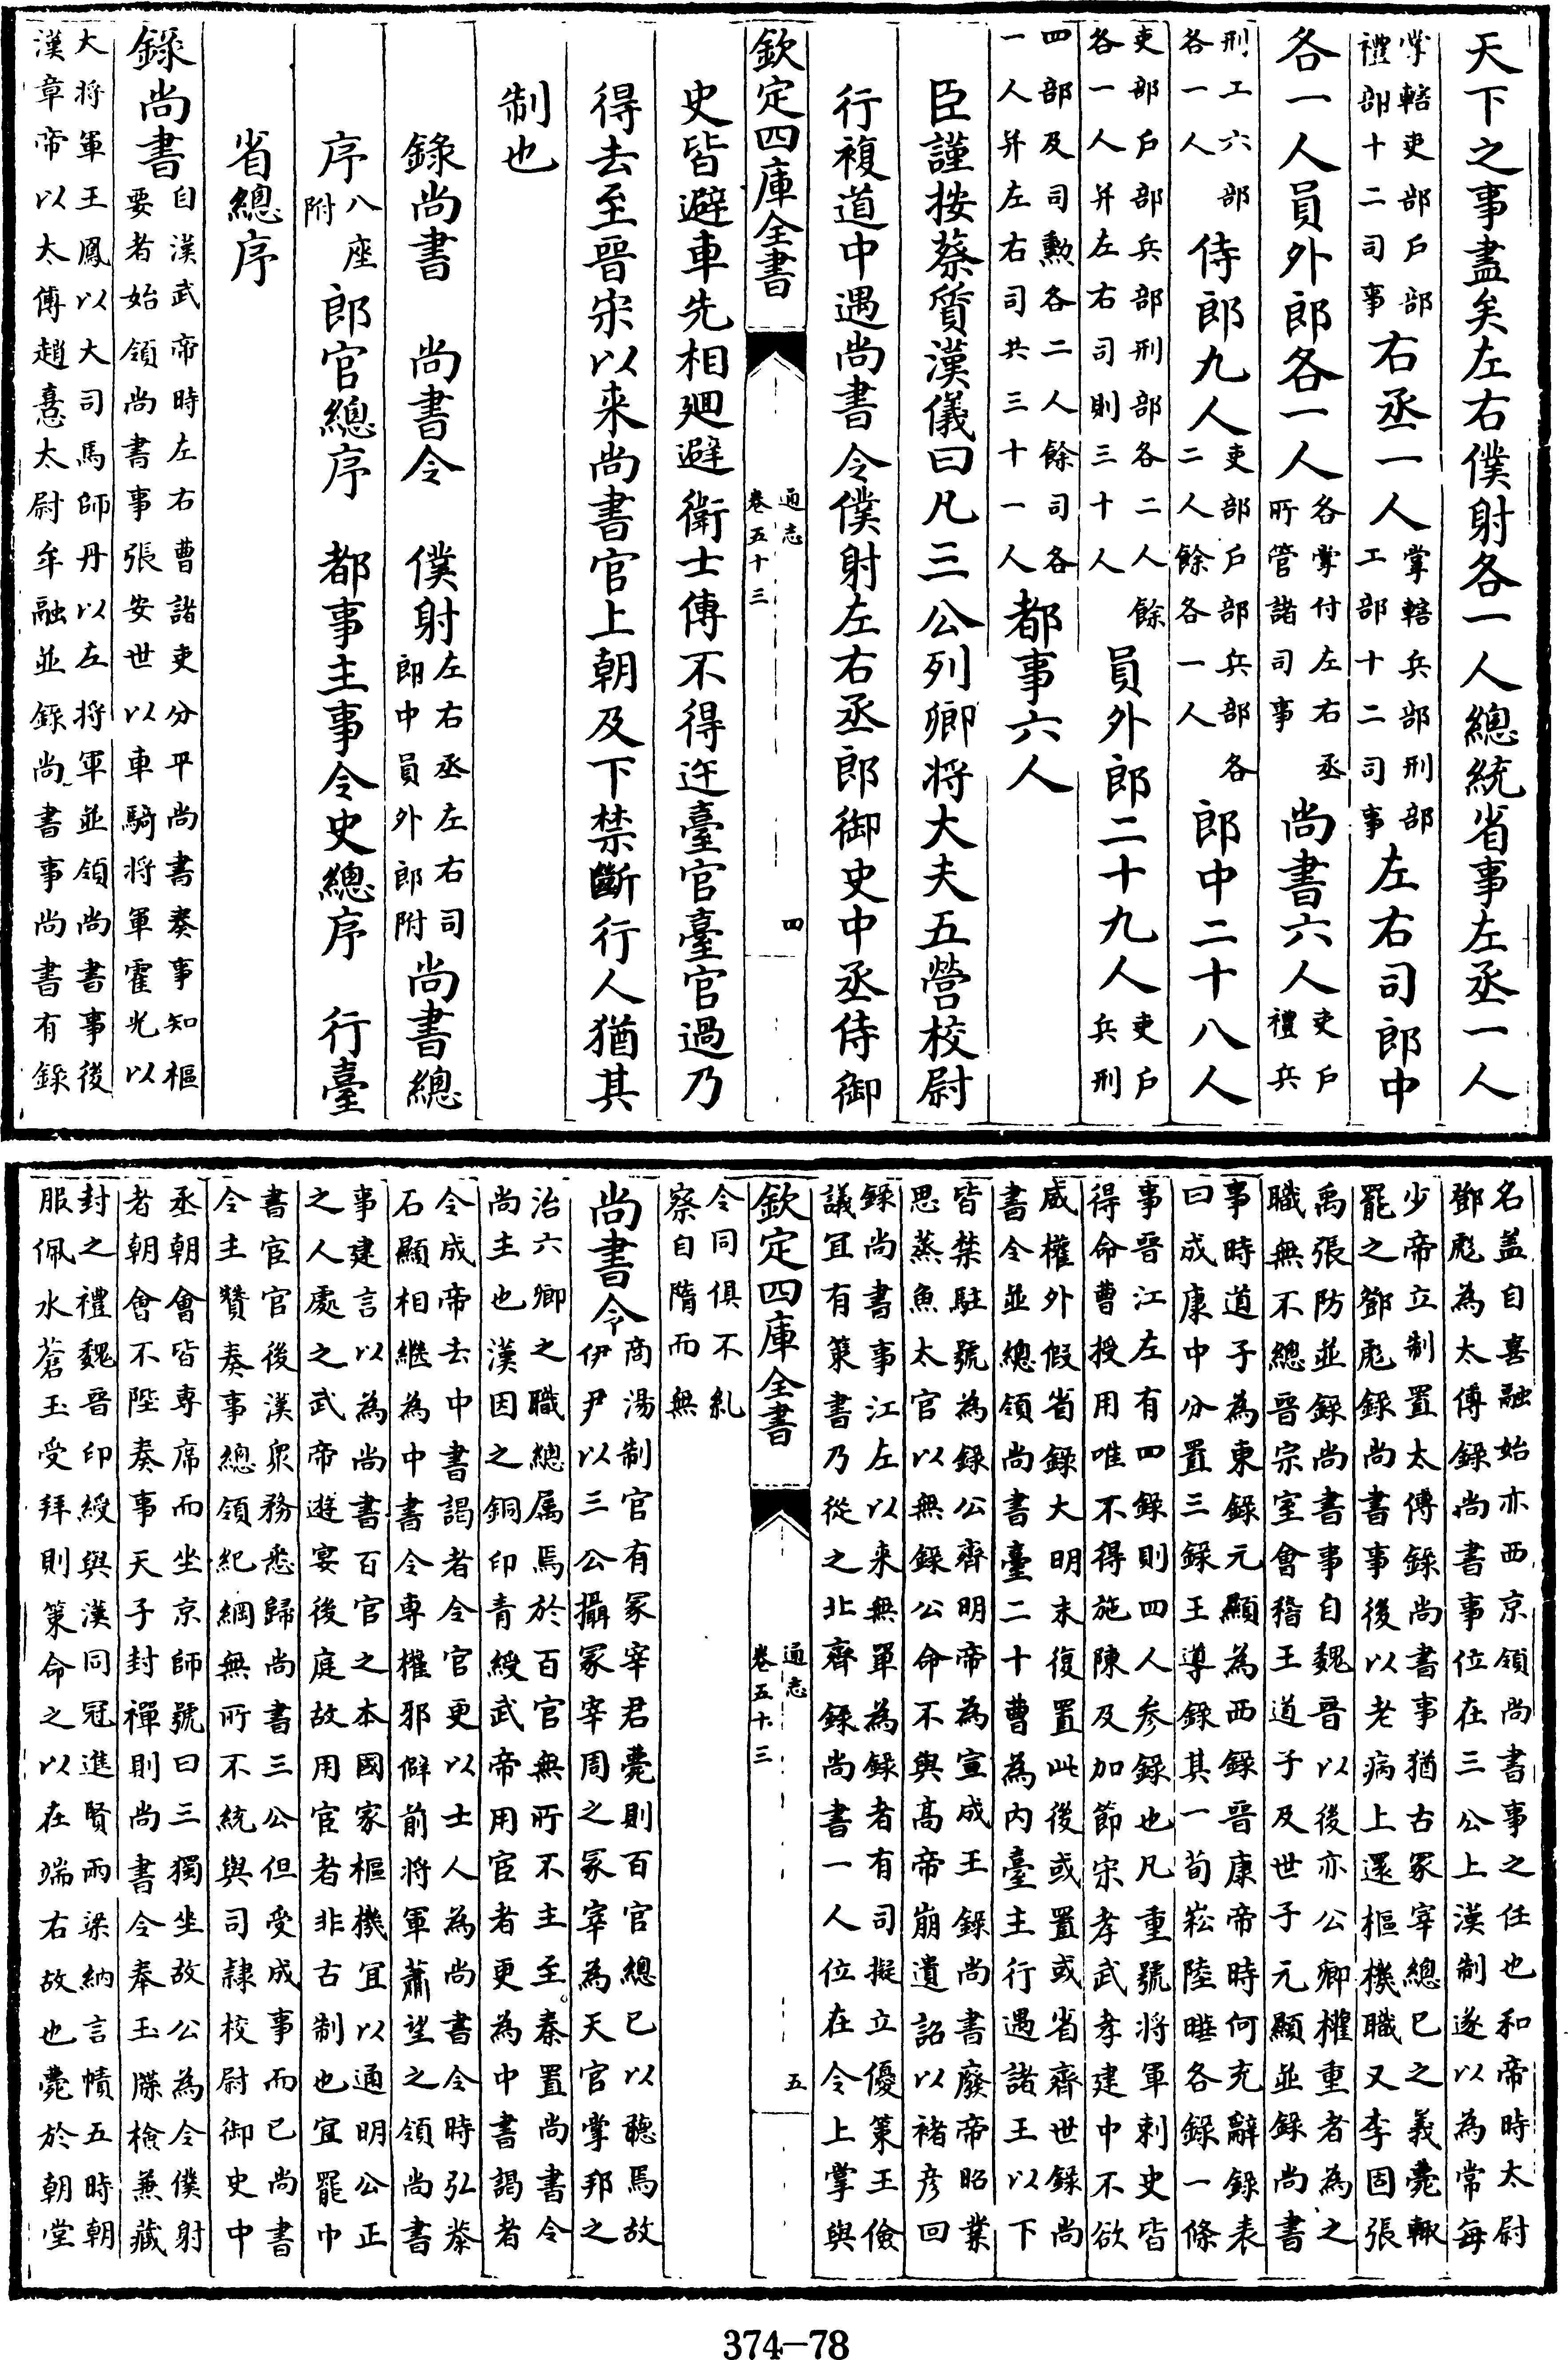 天下之事盡矣左右僕射各一人總統省事左丞一人
掌轄吏部户部禮部十二司事右丞一人掌轄兵部刑部工部十二司事左右司郎中
各一人員外郎各一人各掌付左右丞所管諸司事尚書六人吏户禮兵
刑工六部各一人侍郎九人吏部户部兵部各二人餘各一人郎中二十八人
吏部户部兵部刑部各二人餘各一人并左右司則三十人員外郎二十九人吏户兵刑
四部及司勲各二人餘司各一人并左右司共三十一人都事六人
臣謹按蔡質漢儀曰凡三公列卿將大夫五營校尉
行複道中遇尚書令僕射左右丞郎御史中丞侍御
欽定四庫全書
通志
卷五十三
四
史皆避車先相廻避衛士傳不得迕臺官臺官過乃
得去至晉宋以来尚書官上朝及下禁斷行人猶其
制也
錄尚書 尚書令 僕射左右丞左右司郎中員外郎附尚書總
序八座附郎官總序 都事主事令史總序 行臺
省總序
錄尚書自漢武帝時左右曹諸吏分平尚書奏事知樞要者始領尚書事張安世以車騎將軍霍光以
大將軍王鳳以大司馬師丹以左將軍並領尚書事後漢章帝以太傅趙憙太尉牟融並錄尚書事尚書有錄
名盖自憙融始亦西京領尚書事之任也和帝時太尉鄧彪為太傅錄尚書事位在三公上漢制遂以為常每
少帝立制置太傅錄尚書事猶古冢宰總已之義薨輒罷之鄧彪錄尚書事後以老病上還樞機職又李固張
禹張防並錄尚書事自魏晉以後亦公卿權重者為之職無不總晉宗室會稽王道子及世子元顯並錄尚書
事時道子為東錄元顯為西錄晉康帝時何充辭錄表曰成康中分置三錄王導錄其一荀崧陸曄各錄一條
事晉江左有四錄則四人参錄也凡重號將軍刺史皆得命曹授用唯不得施陳及加節宋孝武孝建中不欲
威權外假省錄大明末復置此後或置或省齊世錄尚書令並總領尚書臺二十曹為内臺主行遇諸王以下
皆禁駐號為錄公齊明帝為宣成王錄尚書廢帝昭業思蒸魚太官以無錄公命不與高帝崩遺詔以褚彦回
錄尚書事江左以来無單為錄者有司擬立優策王儉議宜有策書乃從之北齊錄尚書一人位在令上掌與
欽定四庫全書
通志
卷五十三
五
令同俱不糺察自隋而無
尚書令商湯制官有冢宰君薨則百官總已以聽焉故伊尹以三公攝冢宰周之冢宰為天官掌邦之
治六卿之職總属焉於百官無所不主至秦置尚書令尚主也漢因之銅印青綬武帝用宦者更為中書謁者
令成帝去中書謁者令官更以士人為尚書令時弘㳟石顯相繼為中書令專權邪僻前將軍蕭望之領尚書
事建言以為尚書百官之本國家樞機宜以通明公正之人處之武帝遊宴後庭故用宦者非古制也宜罷中
書宦官後漢衆務悉歸尚書三公但受成事而已尚書令主贊奏事總領紀綱無所不統與司隸校尉御史中
丞朝會皆専席而坐京師號曰三獨坐故公為令僕射者朝會不陛奏事天子封禪則尚書令奉玉牒檢兼藏
封之禮魏晉印綬與漢同冠進賢兩梁納言幘五時朝服佩水蒼玉受拜則策命之以在端右故也薨於朝堂
374-78